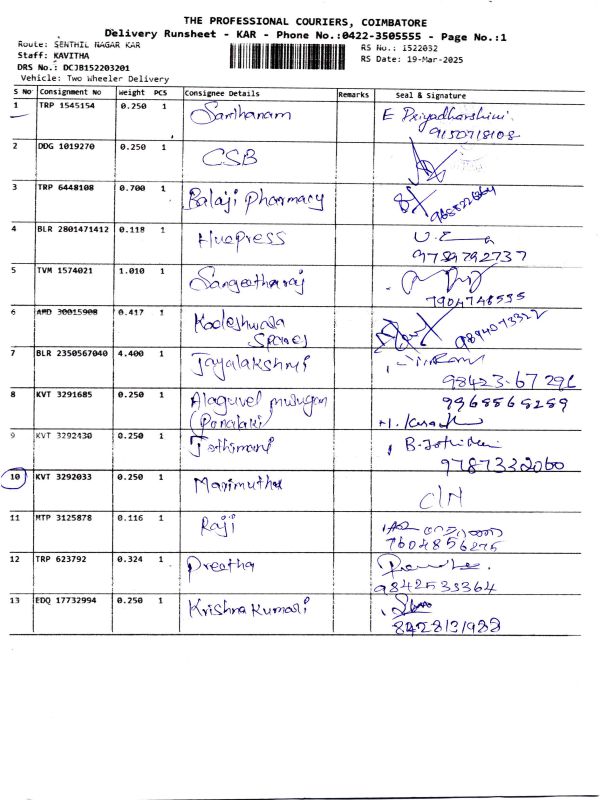 THE PROFESSIONAL COURIERS, COIMBATORE
Delivery Runsheet - KAR - Phone No.:0422-3505555 - Page No.:1
Route: SENTHIL NAGAR KAR
RS No.: 1522032
Staff: KAVITHA
RS Date: 19-Mar-2025
DRS No.: DCJB152203201
Vehicle: Two Wheeler Delivery
S No Consignment No Weight PCS Consignee Details Remarks Seal & Signature
1 TRP 1545154 0.250 1 Santhanam E Priyadharshini
9150718108
2 DDG 1019270 0.250 1 CSB
3 TRP 6448108 0.700 1 Balaji Pharmacy
4 BLR 2801471412 0.118 1 Huepress
9789792737
5 TVM 1574021 1.010 1 Sangeetharaj
7904748555
6 AMD 30015908 0.417 1 Kodeshwara
Spares 9894073322
7 BLR 2350567040 4.400 1 Jayalakshmi
98423-67296
8 KVT 3291685 0.250 1 Alaguvel murugan
9968568259
9 KVT 3292430 0.250 1 Jothimani
9787332060
10 KVT 3292033 0.250 1 Marimuthu C/N
11 MTP 3125878 0.116 1 Raji
7604856275
12 TRP 623792 0.324 1 Preetha
9842533364
13 EDQ 17732994 0.250 1 Krishna Kumari
8428131988